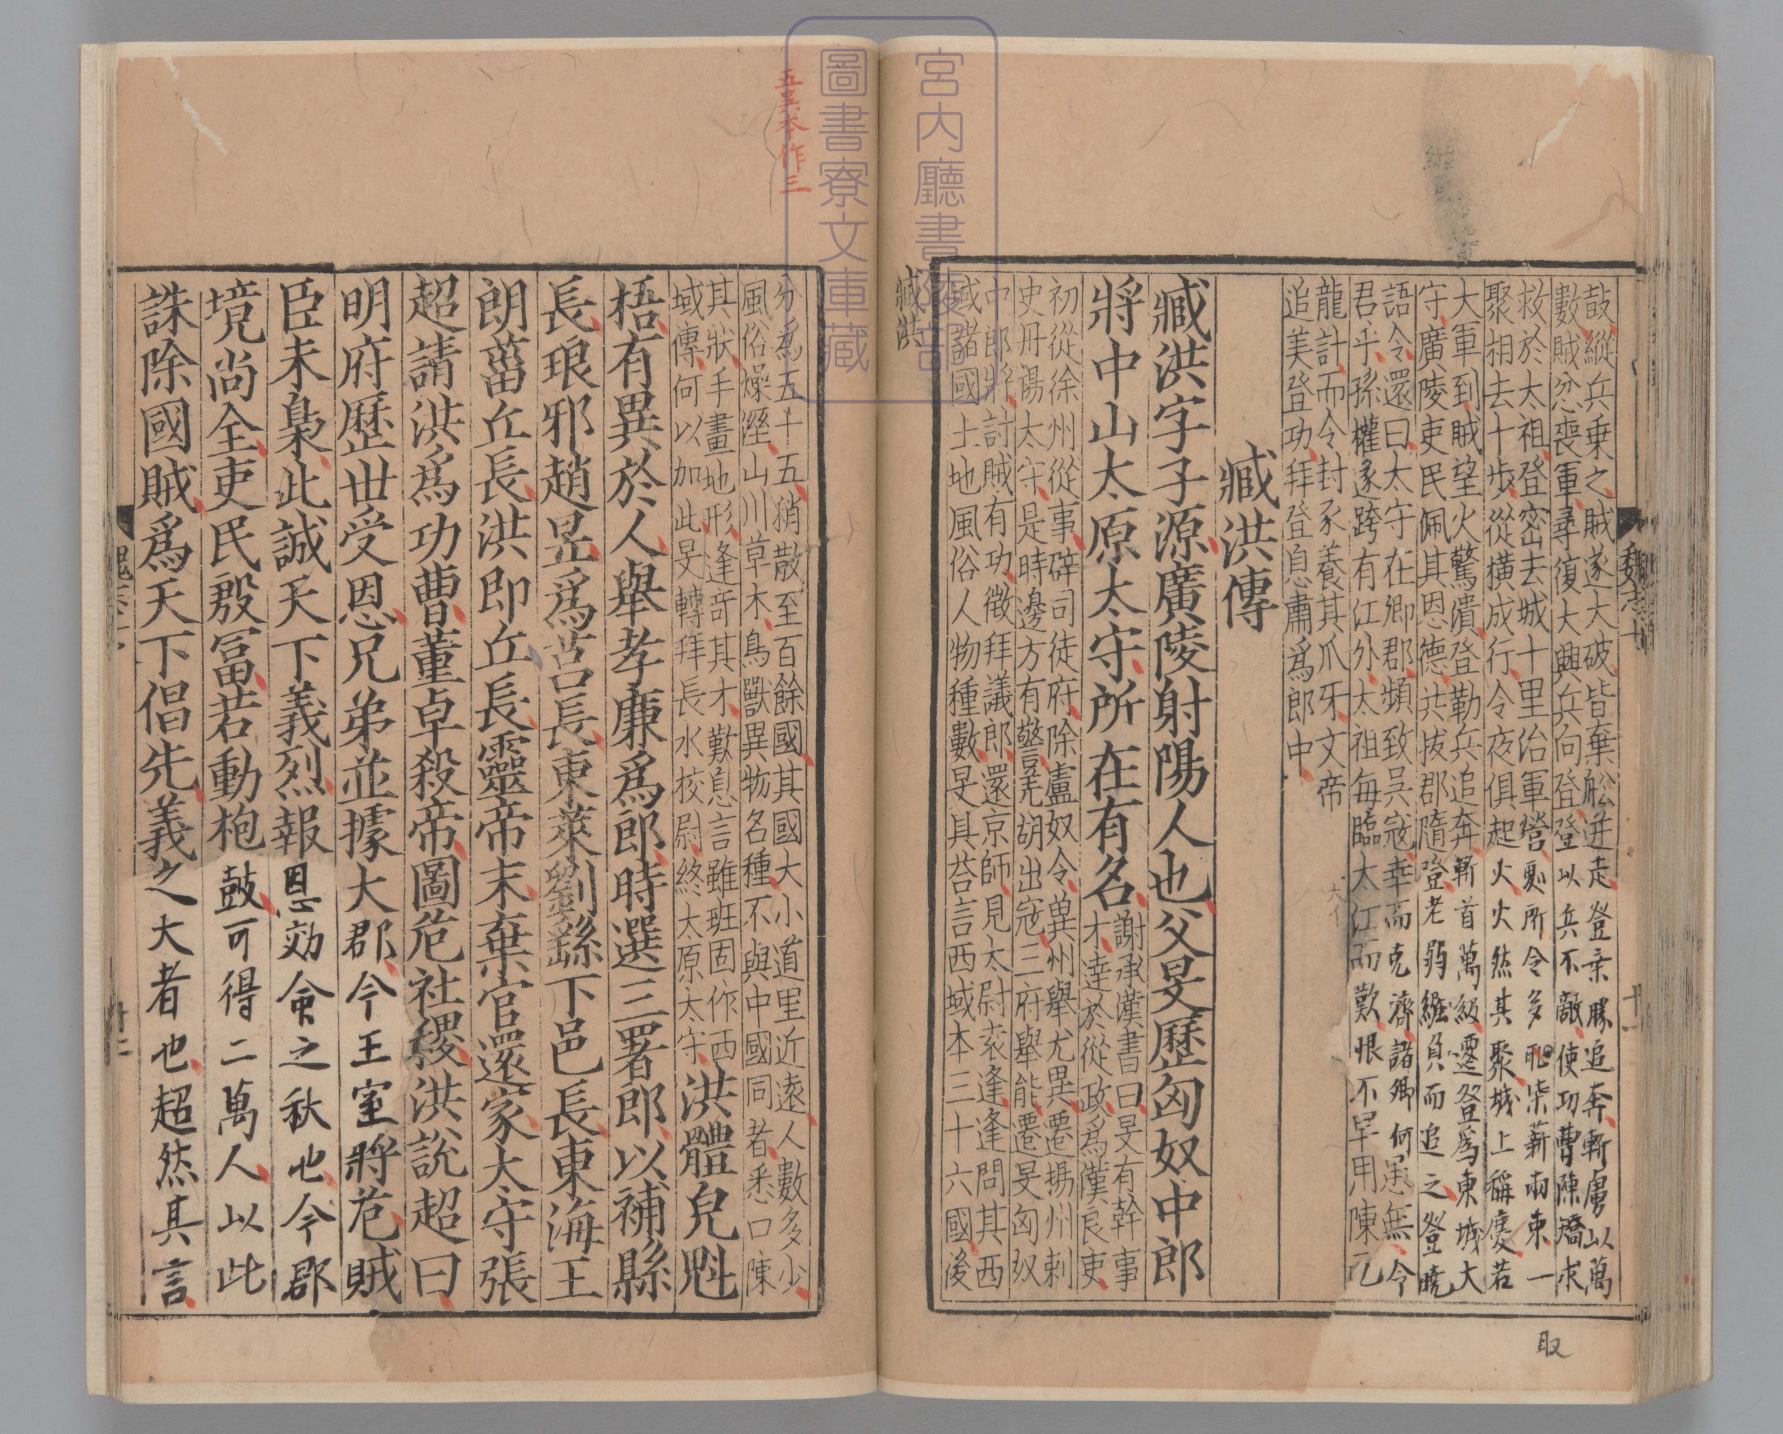 鼓縱兵乗之賊遂大破皆棄舩迸走登乗勝追奔斬虜以萬
數賊忿喪軍尋復大興兵向登登以兵不敵使功曹陳矯求
救於太祖登密去城十里治軍營處所令多取柴薪兩束一
聚相去十步從横成行令夜俱起火火然其聚城上稱慶若
大軍到賊望火驚潰登勒兵追奔斬首萬級遷登爲東城大
守廣陵吏民佩其恩德共拔郡隨登老弱繈負而追之登曉
語令還曰太守在卿郡頻致吳冦幸而克濟諸卿何患無令
君乎孫權遂跨有江外太祖每臨大江而歎恨不早用陳元
龍計而令封豕養其爪牙文帝
追美登功拜登息肅爲郎中
臧洪傳
臧洪字子源廣陵射陽人也父旻歷匈奴中郎
將中山太原太守所在有名
謝承漢書曰旻有幹事
才達於從政爲漢良吏
初從徐州從事辟司徒府除盧奴令兾州舉尤異遷揚州刺
史丹陽太守是時邊方有警羌胡出冦三府舉能遷旻匈奴
中郎將討賊有功徵拜議郎還京師見太尉袁逢逢問其西
域諸國土地風俗人物種數旻具荅言西域本三十六國後
臧洪
取
魏志七
十一
五吳本作三
分爲五十五稍散至百餘國其國大小道里近遠人數多少
風俗燥溼山川草木鳥獸異物名種不與中國同者悉口陳
其狀手畫地形逢竒其才歎息言雖班固作西
域傳何以加此旻轉拜長水校尉終太原太守
洪體皃魁
梧有異於人舉孝廉爲郎時選三署郎以補縣
長琅邪趙昱爲莒長東萊劉繇下邑長東海王
朗菑丘長洪即丘長靈帝末棄官還家太守張
超請洪爲功曹董卓殺帝圖危社稷洪說超曰
明府歷世受恩兄弟並據大郡今王室將危賊
臣未梟此誠天下義烈報恩効命之秋也今郡
境尚全吏民殷冨若動枹鼓可得二萬人以此
誅除國賊爲天下倡先義之大者也超然其言
宮内廳書陵部
圖書寮文庫藏